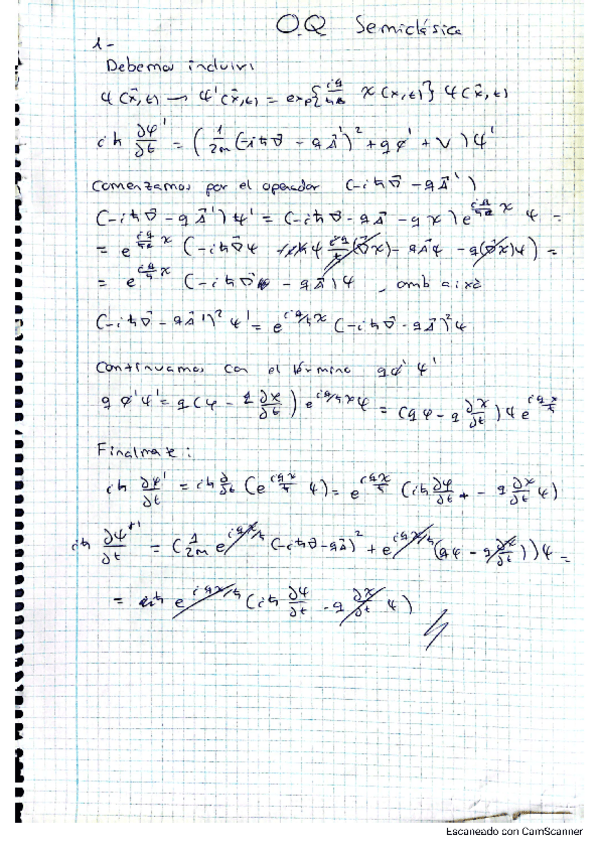 O.Q Semiclásica
1-
Debemos incluir:
ψ(x⃗,t) → ψ'(x⃗,t) = exp{iq/ħ χ(x,t)} ψ(x⃗,t)
iħ ∂ψ'/∂t = (1/2m (-iħ∇⃗ - qA⃗')² + qϕ' + V)ψ'
Comenzamos por el operador (-iħ∇⃗ - qA⃗')
(-iħ∇⃗ - qA⃗')ψ' = (-iħ∇⃗ - qA⃗ - qχ)e^{iq/ħ χ} ψ =
= e^{iq/ħ χ} (-iħ∇⃗ψ ψ iq/ħ (∇⃗χ) - qA⃗ψ - q(∇⃗χ)ψ) =
= e^{iq/ħ χ} (-iħ∇⃗ - qA⃗)ψ , amb això
(-iħ∇⃗ - qA⃗')²ψ' = e^{iq/ħ χ} (-iħ∇⃗ - qA⃗)²ψ
Continuamos con el término qϕ'ψ'
qϕ'ψ' = q(φ - ∂χ/∂t) e^{iq/ħ χ}ψ = (qφ - q ∂χ/∂t)ψ e^{iqχ/ħ}
Finalmente:
iħ ∂ψ'/∂t = iħ ∂/∂t (e^{iqχ/ħ} ψ) = e^{iqχ/ħ} (iħ ∂ψ/∂t - q ∂χ/∂t ψ)
iħ ∂ψ'/∂t = (1/2m e^{iqχ/ħ} (-iħ∇ - qA⃗)² + e^{iqχ/ħ} (qφ - q ∂χ/∂t))ψ =
= e^{iqχ/ħ} (iħ ∂ψ/∂t - q ∂χ/∂t ψ)
Escaneado con CamScanner